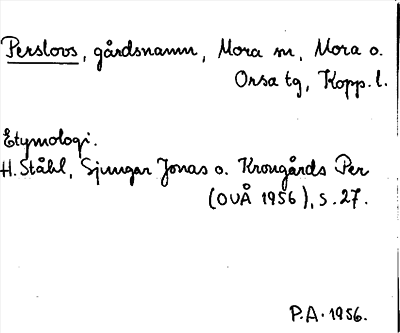 Persloos, gårdsnamn, Mora sn, Mora o.
Orsa tg, Kopp. l.
Etymologi.
H. Ståhl, Sjungar Jonas o. Krongårds Per
(OUÅ 1956), s. 27.
P.A. 1956.